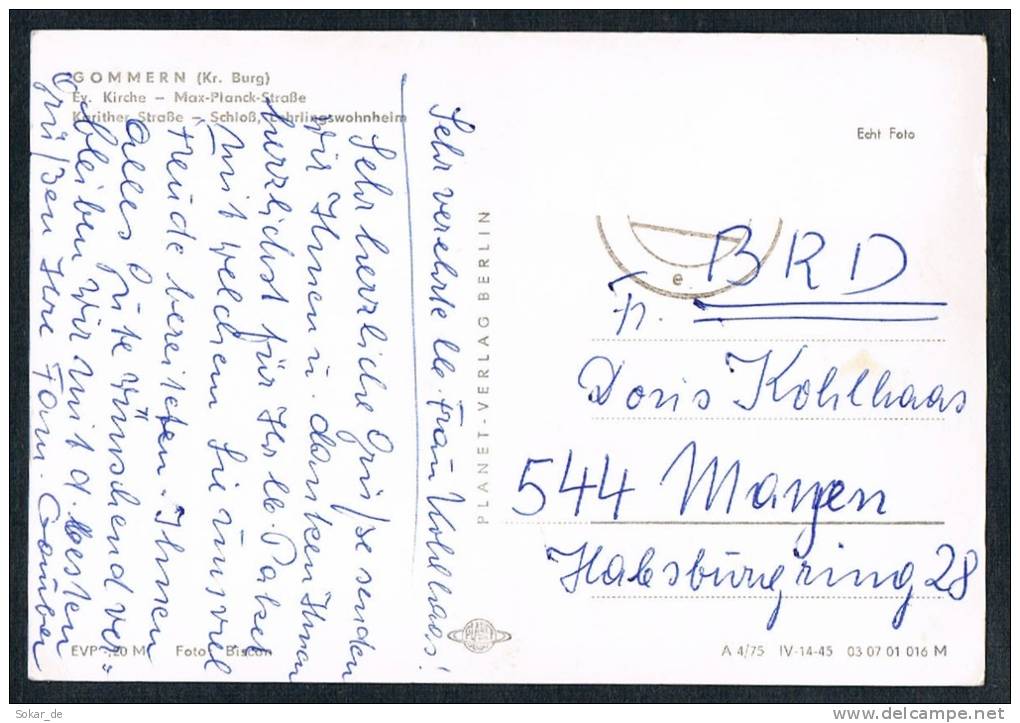 GOMMERN (Kr. Burg)
Ev. Kirche – Max-Planck-Straße
Karither Straße – Schloß, Lehrlingswohnheim
Echt Foto
Sehr verehrte lb. Frau Kohlhaas!
Sehr herzliche Grüße senden
wir Ihnen u. danken Ihnen
herzlichst für Ihr lb. Paket
mit welchem Sie uns viel
Freude bereiteten. Ihnen
alles Gute wünschend ver=
bleiben wir mit d. besten
Grüßen Ihre Fam.
PLANET-VERLAG BERLIN
e
BRD
Fr.
Doris Kohlhaas
544 Mayen
Habsburgring 28
EVP -,20 M Foto: Biscan
PLANET
A 4/75 IV-14-45 03 07 01 016 M
Sokar_de